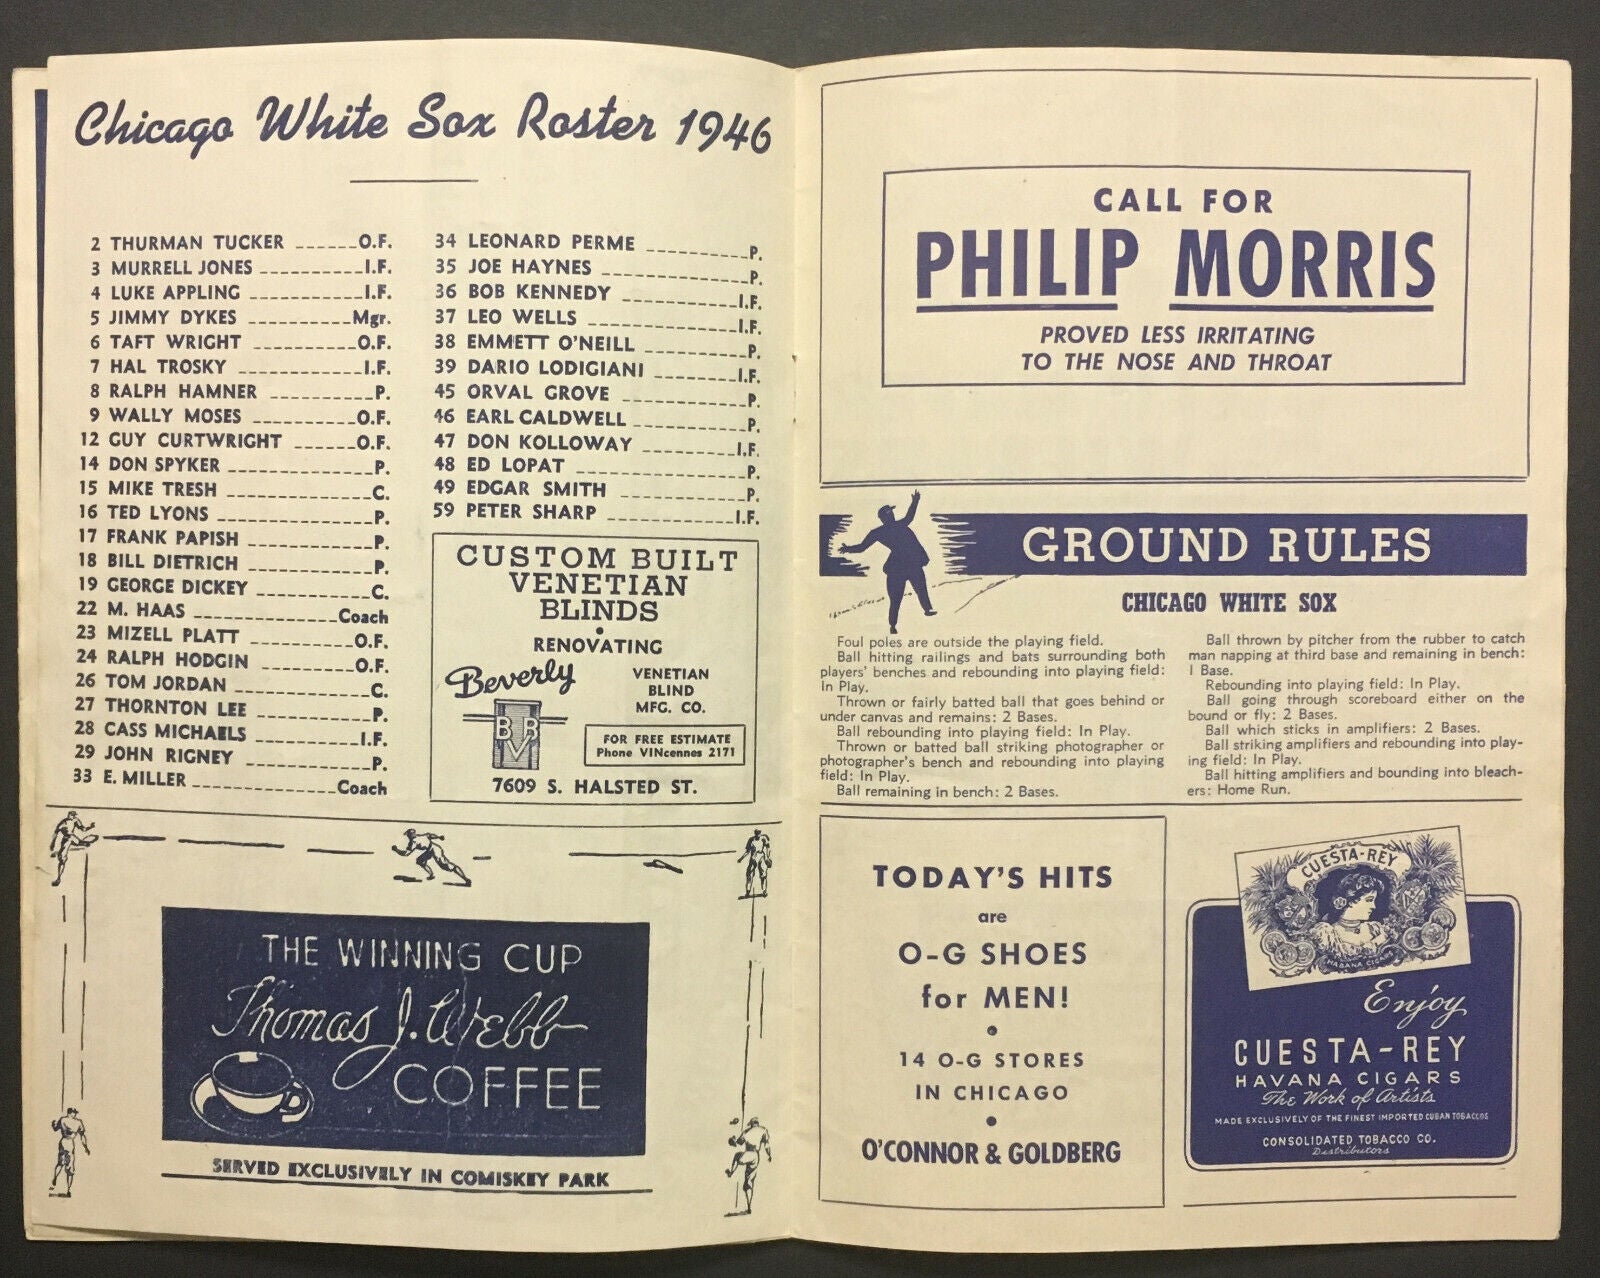 Chicago White Sox Roster 1946
2 THURMAN TUCKER ______O.F.
3 MURRELL JONES __________I.F.
4 LUKE APPLING ___________I.F.
5 JIMMY DYKES __________Mgr.
6 TAFT WRIGHT __________O.F.
7 HAL TROSKY ____________I.F.
8 RALPH HAMNER __________P.
9 WALLY MOSES __________O.F.
12 GUY CURTWRIGHT ______O.F.
14 DON SPYKER ______________P.
15 MIKE TRESH ______________C.
16 TED LYONS ______________P.
17 FRANK PAPISH ____________P.
18 BILL DIETRICH ____________P.
19 GEORGE DICKEY __________C.
22 M. HAAS ______________Coach
23 MIZELL PLATT __________O.F.
24 RALPH HODGIN ________O.F.
26 TOM JORDAN ____________C.
27 THORNTON LEE __________P.
28 CASS MICHAELS __________I.F.
29 JOHN RIGNEY ____________P.
33 E. MILLER ______________Coach
34 LEONARD PERME __________P.
35 JOE HAYNES ______________P.
36 BOB KENNEDY ____________I.F.
37 LEO WELLS ______________I.F.
38 EMMETT O'NEILL __________P.
39 DARIO LODIGIANI ________I.F.
45 ORVAL GROVE ____________P.
46 EARL CALDWELL __________P.
47 DON KOLLOWAY __________I.F.
48 ED LOPAT ________________P.
49 EDGAR SMITH ____________P.
59 PETER SHARP ____________I.F.
CUSTOM BUILT
VENETIAN
BLINDS
RENOVATING
Beverly
VENETIAN
BLIND
MFG. CO.
BVB
FOR FREE ESTIMATE
Phone VINcennes 2171
7609 S. HALSTED ST.
THE WINNING CUP
Thomas J. Webb
COFFEE
SERVED EXCLUSIVELY IN COMISKEY PARK
CALL FOR
PHILIP MORRIS
PROVED LESS IRRITATING
TO THE NOSE AND THROAT
GROUND RULES
CHICAGO WHITE SOX
Foul poles are outside the playing field.
Ball hitting railings and bats surrounding both
players' benches and rebounding into playing field:
In Play.
Thrown or fairly batted ball that goes behind or
under canvas and remains: 2 Bases.
Ball rebounding into playing field: In Play.
Thrown or batted ball striking photographer or
photographer's bench and rebounding into playing
field: In Play.
Ball remaining in bench: 2 Bases.
Ball thrown by pitcher from the rubber to catch
man napping at third base and remaining in bench:
1 Base.
Rebounding into playing field: In Play.
Ball going through scoreboard either on the
bound or fly: 2 Bases.
Ball which sticks in amplifiers: 2 Bases.
Ball striking amplifiers and rebounding into play-
ing field: In Play.
Ball hitting amplifiers and bounding into bleach-
ers: Home Run.
TODAY'S HITS
are
O-G SHOES
for MEN!
14 O-G STORES
IN CHICAGO
O'CONNOR & GOLDBERG
CUESTA-REY
HABANA CIGARS
Enjoy
CUESTA-REY
HAVANA CIGARS
The Work of Artists
MADE EXCLUSIVELY OF THE FINEST IMPORTED CUBAN TOBACCOS
CONSOLIDATED TOBACCO CO.
Distributors